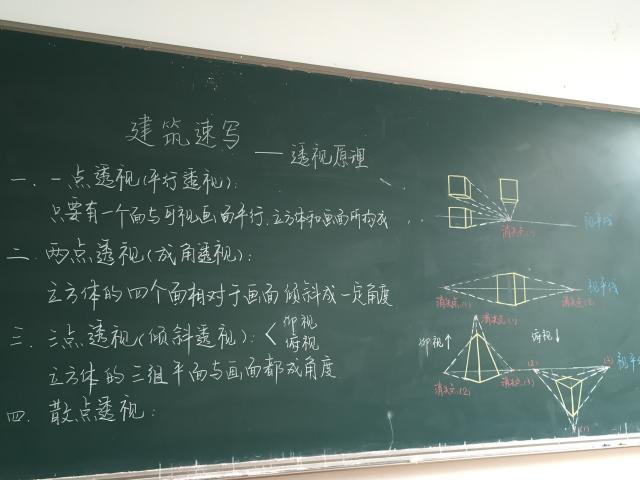 建筑速写
——透视原理
一.一点透视(平行透视):
只要有一个面与可视画面平行.立方体和画面所构成...
二.两点透视(成角透视):
立方体的四个面相对于画面倾斜成一定角度
三.三点透视(倾斜透视):<仰视
俯视
立方体的三组平面与画面都成角度
四.散点透视:
视平线
消失点(1)
视平线
消失点(1)
消失点(2)
消失点(1)
仰视↑
俯视↓
消失点(2)
消失点(3)
(2)
(3)
视平线
(1)